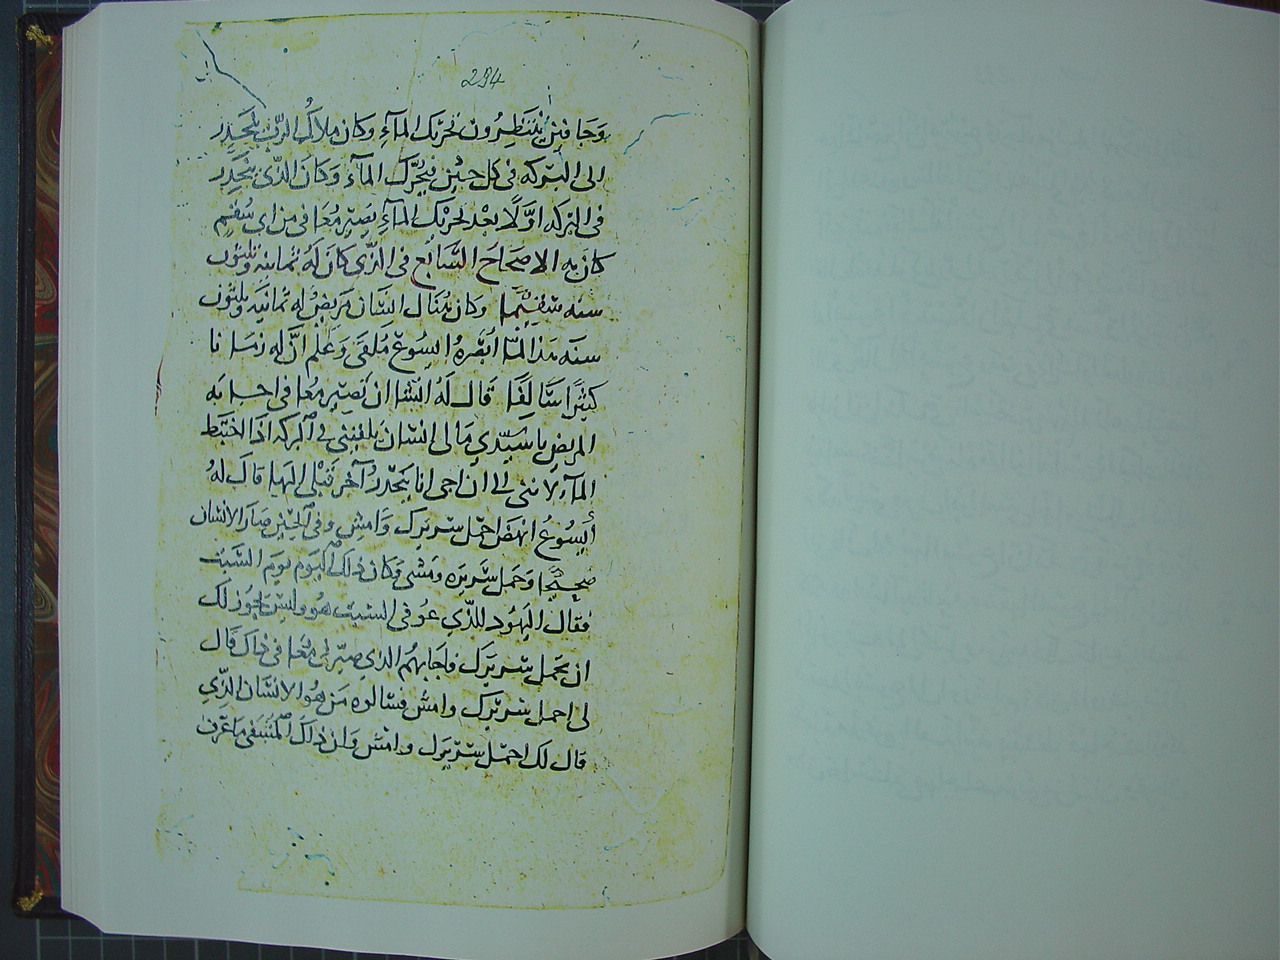 234
وَجَافين يَنْتَظِرُون تحريك المآءِ وكان ملاكُ الربّ يَنحَدِر
الى البركه فى كل حِيْنٍ فيُحَرّك المآءَ وَكَانَ الذّى يَنحَدِر
فى البركه اوَّلًا بعْد تحريْك المآءِ يَصِيْر مُعَافى من اى سُقم
كان به الاصْحَاحَ السَّابع فى الذى كان لهُ ثمانيه وثلثون
سنه سَقِيْمًا وكان هُنَاك انسَان مَريض له ثمانيَه وثلثون
سنَه هَذا لمّا ابْصَرهُ ايسُوع مُلقىً وَعَلِم انَّ له زمَانا
كثيْرًا سَالِفًا قَال لَهُ اتشا ان تَصِيْر مُعافى اجابه
المريض يا سَيّدي مَا لى انسَان يلقينى فى البركه اذا اختبَط
المآء لاننى الى ان اجى انا يَنْحَدِرُ آخر قَبْلى اليْها قالَ لهُ
ايسُوعُ انهَض احمل سَريرك وَامشِ وفى الحِيْن صَار الانسَان
صَحِيْحًا وَحَمل سَريره ومَشى وَكان ذلك اليَوم يوم السَّبت
فقال اليَهُود للذّي عوُفى السَبت هُوَ وليسَ يجُوز لك
ان تحمل سَريْرك فاجَابهُم الذي صيّرنى مُعافى ذاك قال
لى احمل سَريْرك وامش فسَالوه مَن هُوَ الانسَان الذّي
قال لك احْمل سَريْرك وامْش وَان ذلك المُتَشَفى مَا عَرف